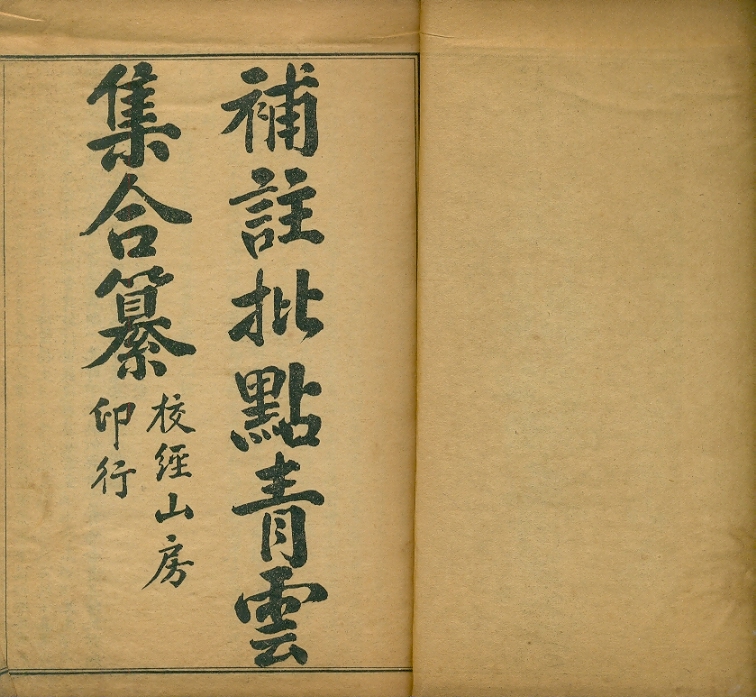 補註批點青雲
集合纂
校經山房
印行